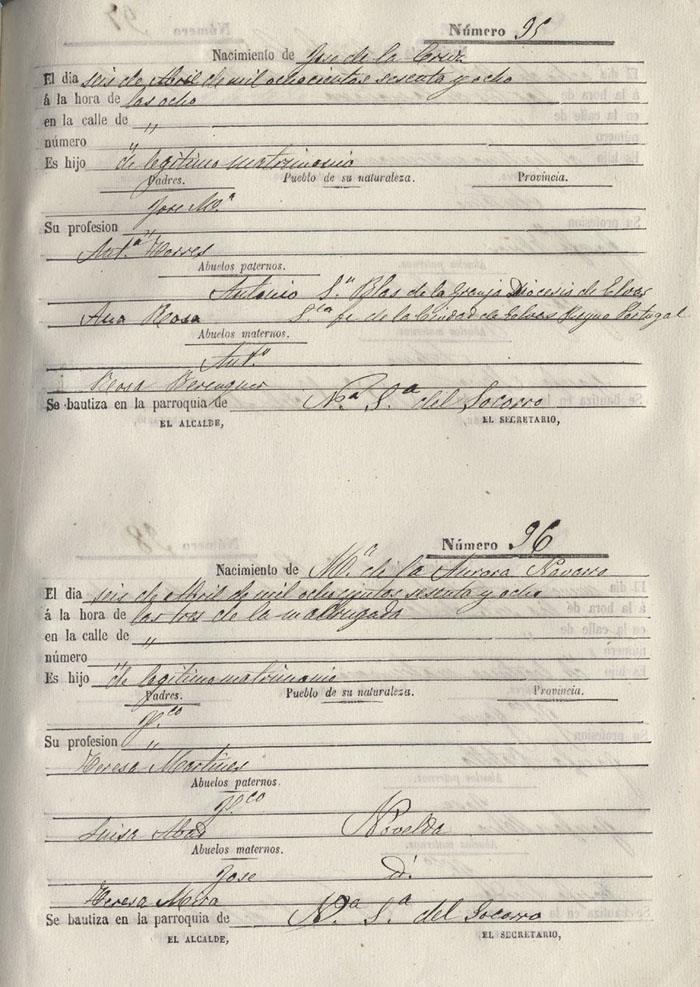 Número 95
Nacimiento de Jose de la Cruz
El dia seis de Abril de mil ochocientos sesenta y ocho
á la hora de las ocho
en la calle de "
número "
Es hijo de legitimo matrimonio
Padres. Pueblo de su naturaleza. Provincia.
Jose Mª
Su profesion "
Antª Torres
Abuelos paternos.
Antonio Sn Blas de la Granja Diocesis de Elvas
Ana Rosa fe de la Ciudad de Elvas Reyno Portugal
Abuelos maternos.
Antº
Rosa Berenguer
Se bautiza en la parroquia de Nª Sª del Socorro
EL ALCALDE, EL SECRETARIO,
Número 96
Nacimiento de Mª de la Aurora Navarro
El dia seis de Abril de mil ochocientos sesenta y ocho
á la hora de las tres de la madrugada
en la calle de "
número "
Es hijo de legitimo matrimonio
Padres. Pueblo de su naturaleza. Provincia.
Fco
Su profesion "
Teresa Martines
Abuelos paternos.
Fco
Luisa Abad Novelda
Abuelos maternos.
Jose d.
Teresa Mira
Se bautiza en la parroquia de Nª Sª del Socorro
EL ALCALDE, EL SECRETARIO,